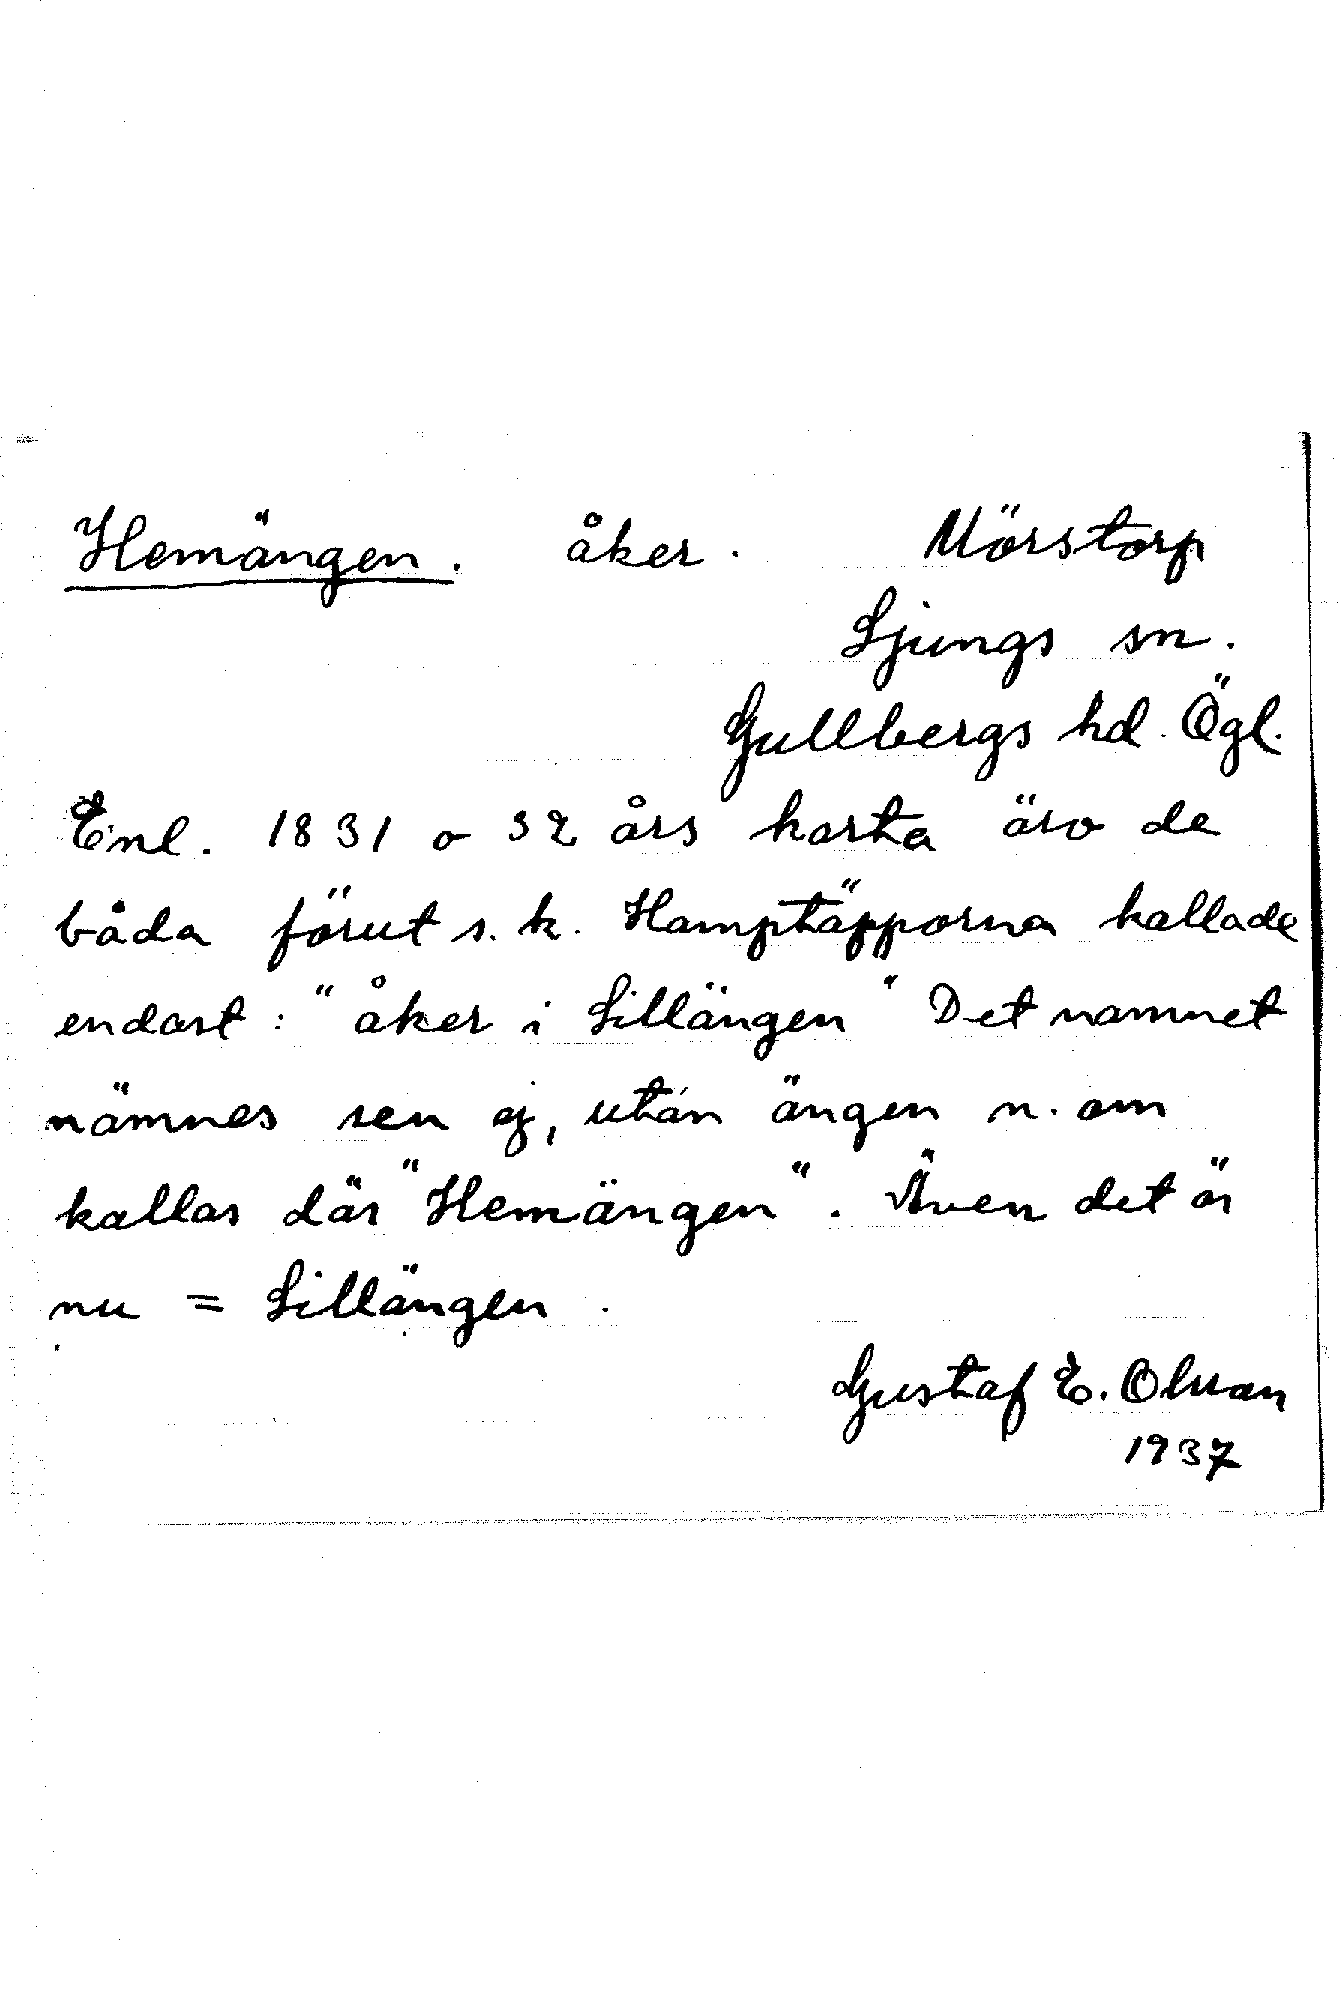 Hemängen. åker. Mörstorp
Ljungs sn.
Gullbergs hd. Ögl.
Enl. 1831 o 32 års karta äro de
båda förut s. k. Hamptäpporna kallade
endast: "åker i Lillängen" Det namnet
nämnes sen ej, utan ängen n. om
kallas där "Hemängen". Även det är
nu = Lillängen.
Gustaf E. Olsson
1937